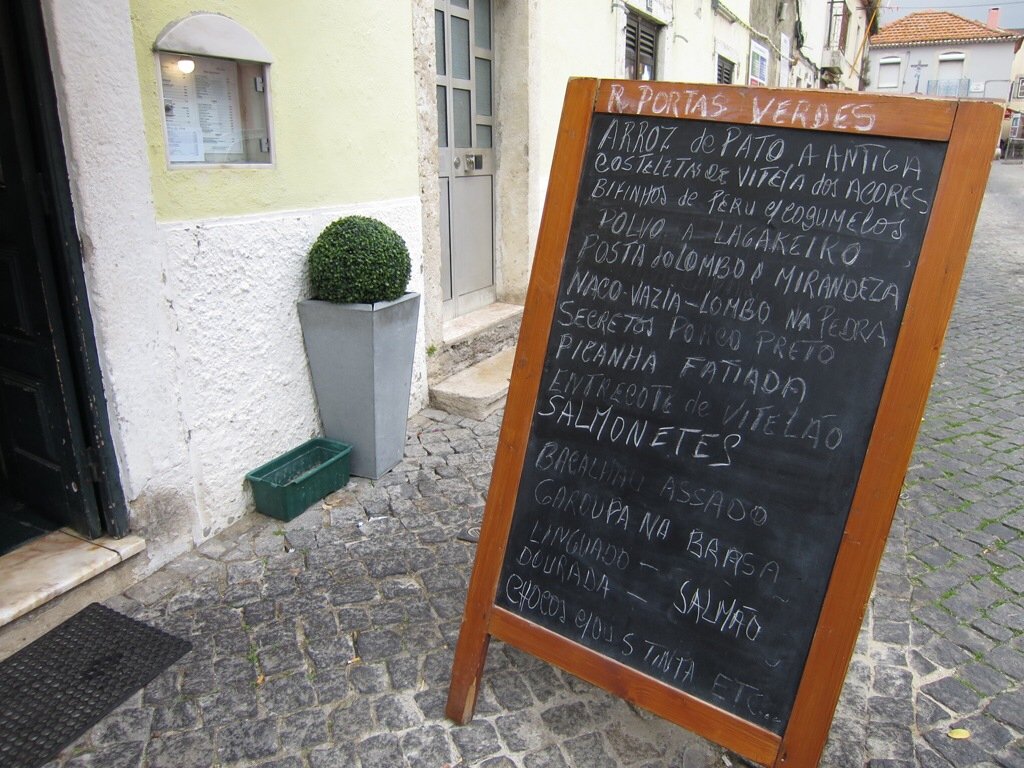 R. PORTAS VERDES
ARROZ de PATO A ANTIGA
COSTELETAS DE VITELA dos AÇORES
BIFINHOS de PERU c/cogumelos
POLVO A LAGAREIRO
POSTA do LOMBO A MIRANDEZA
NACO-VAZIA-LOMBO NA PEDRA
SECRETOS PORCO PRETO
PICANHA FATIADA
ENTRECOTE de VITELÃO
SALMONETES
BACALHAU ASSADO
GAROUPA NA BRASA
LINGUADO -
DOURADA - SALMÃO
CHOCOS c/ou S TINTA ETC...